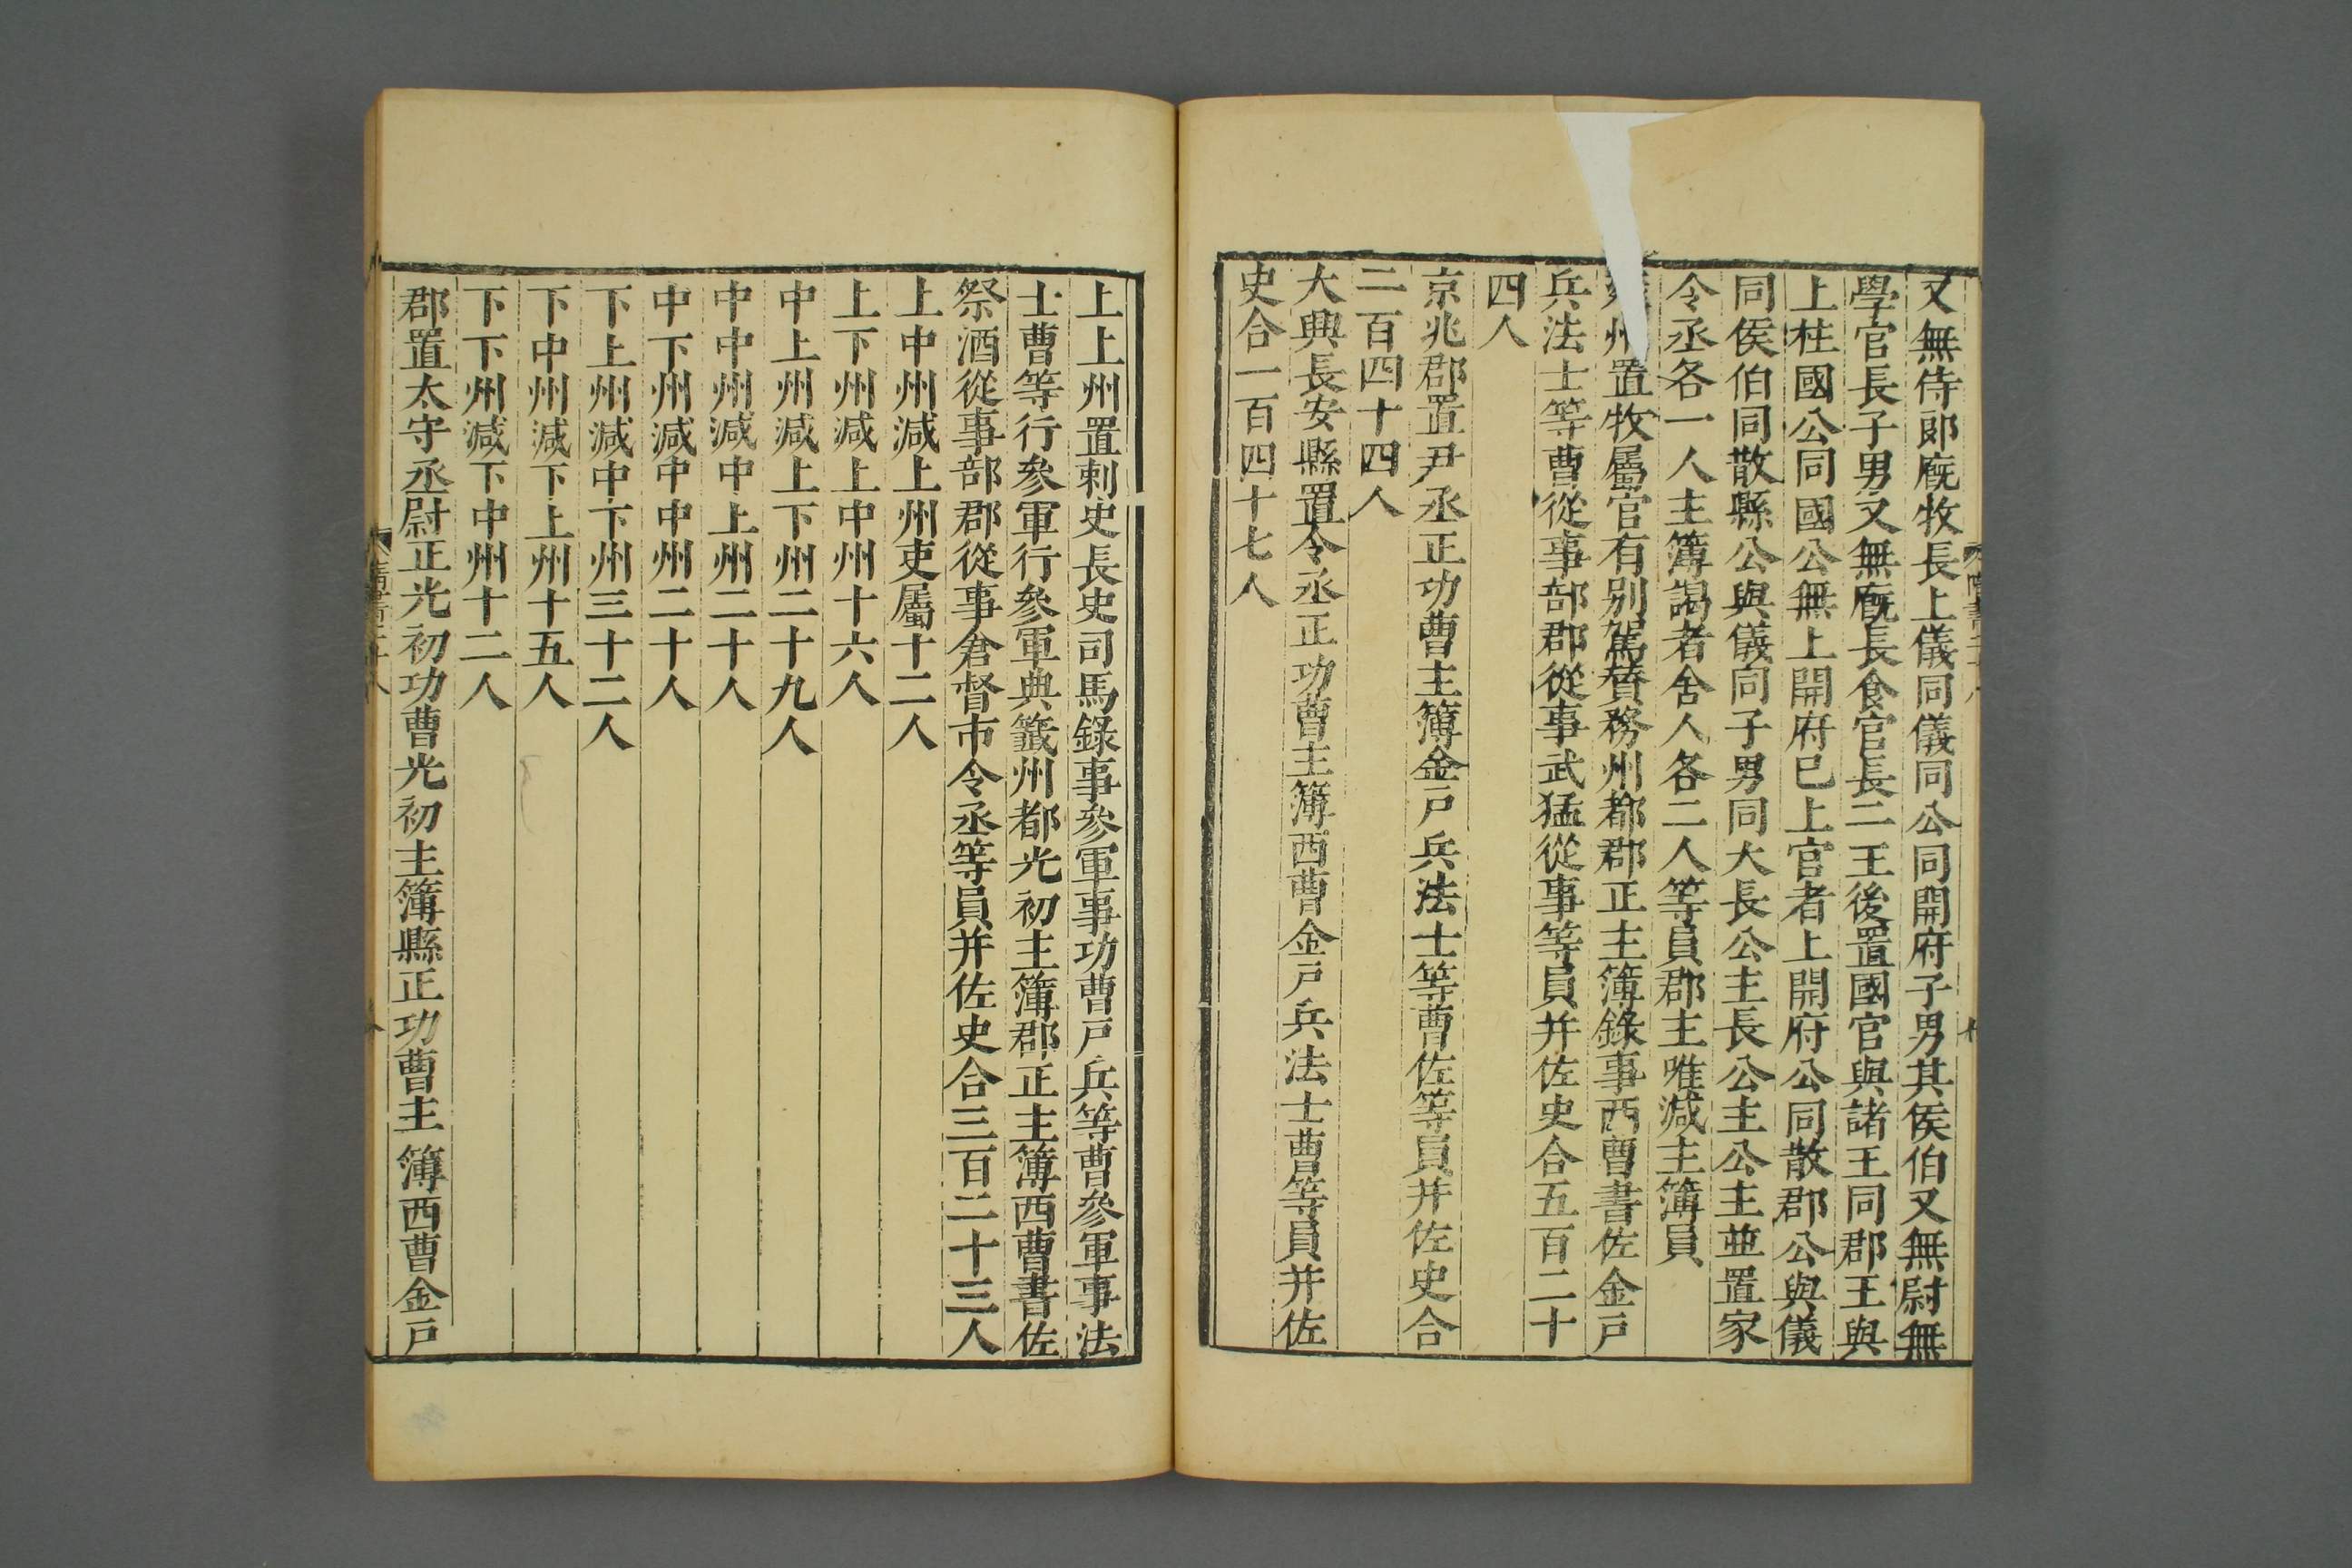 又無侍郎廐牧長上儀同儀同公同開府子男其侯伯又無尉無
學官長子男又無廐長食官長二王後置國官與諸王同郡王與
上柱國公同國公無上開府已上官者上開府公同散郡公與儀
同侯伯同散縣公與儀同子男同大長公主長公主公主並置家
令丞各一人主簿謁者舍人各二人等員郡主唯減主簿員
州置牧屬官有別駕贊務州都郡正主簿錄事西曹書佐金戶
兵法士等曹從事部郡從事武猛從事等員并佐史合五百二十
四人
京兆郡置尹丞正功曹主簿金戶兵法士等曹佐等員并佐史合
二百四十四人
大興長安縣置令丞正功曹主簿西曹金戶兵法士曹等員并佐
史合一百四十七人
上上州置刺史長史司馬錄事參軍事功曹戶兵等曹參軍事法
士曹等行參軍行參軍典籤州都光初主簿郡正主簿西曹書佐
祭酒從事部郡從事倉督市令丞等員并佐史合三百二十三人
上中州減上州吏屬十二人
上下州減上中州十六人
中上州減上下州二十九人
中中州減中上州二十人
中下州減中中州二十人
下上州減中下州三十二人
下中州減下上州十五人
下下州減下中州十二人
郡置太守丞尉正光初功曹光初主簿縣正功曹主簿西曹金戶